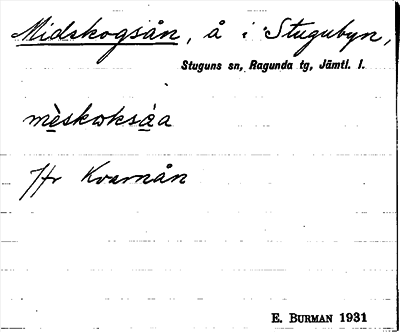 Midskogsån, å i Stugubyn,
Stuguns sn, Ragunda tg, Jämtl. l.
mèskωksá̱a
Hr Kvarnån
E. BURMAN 1931